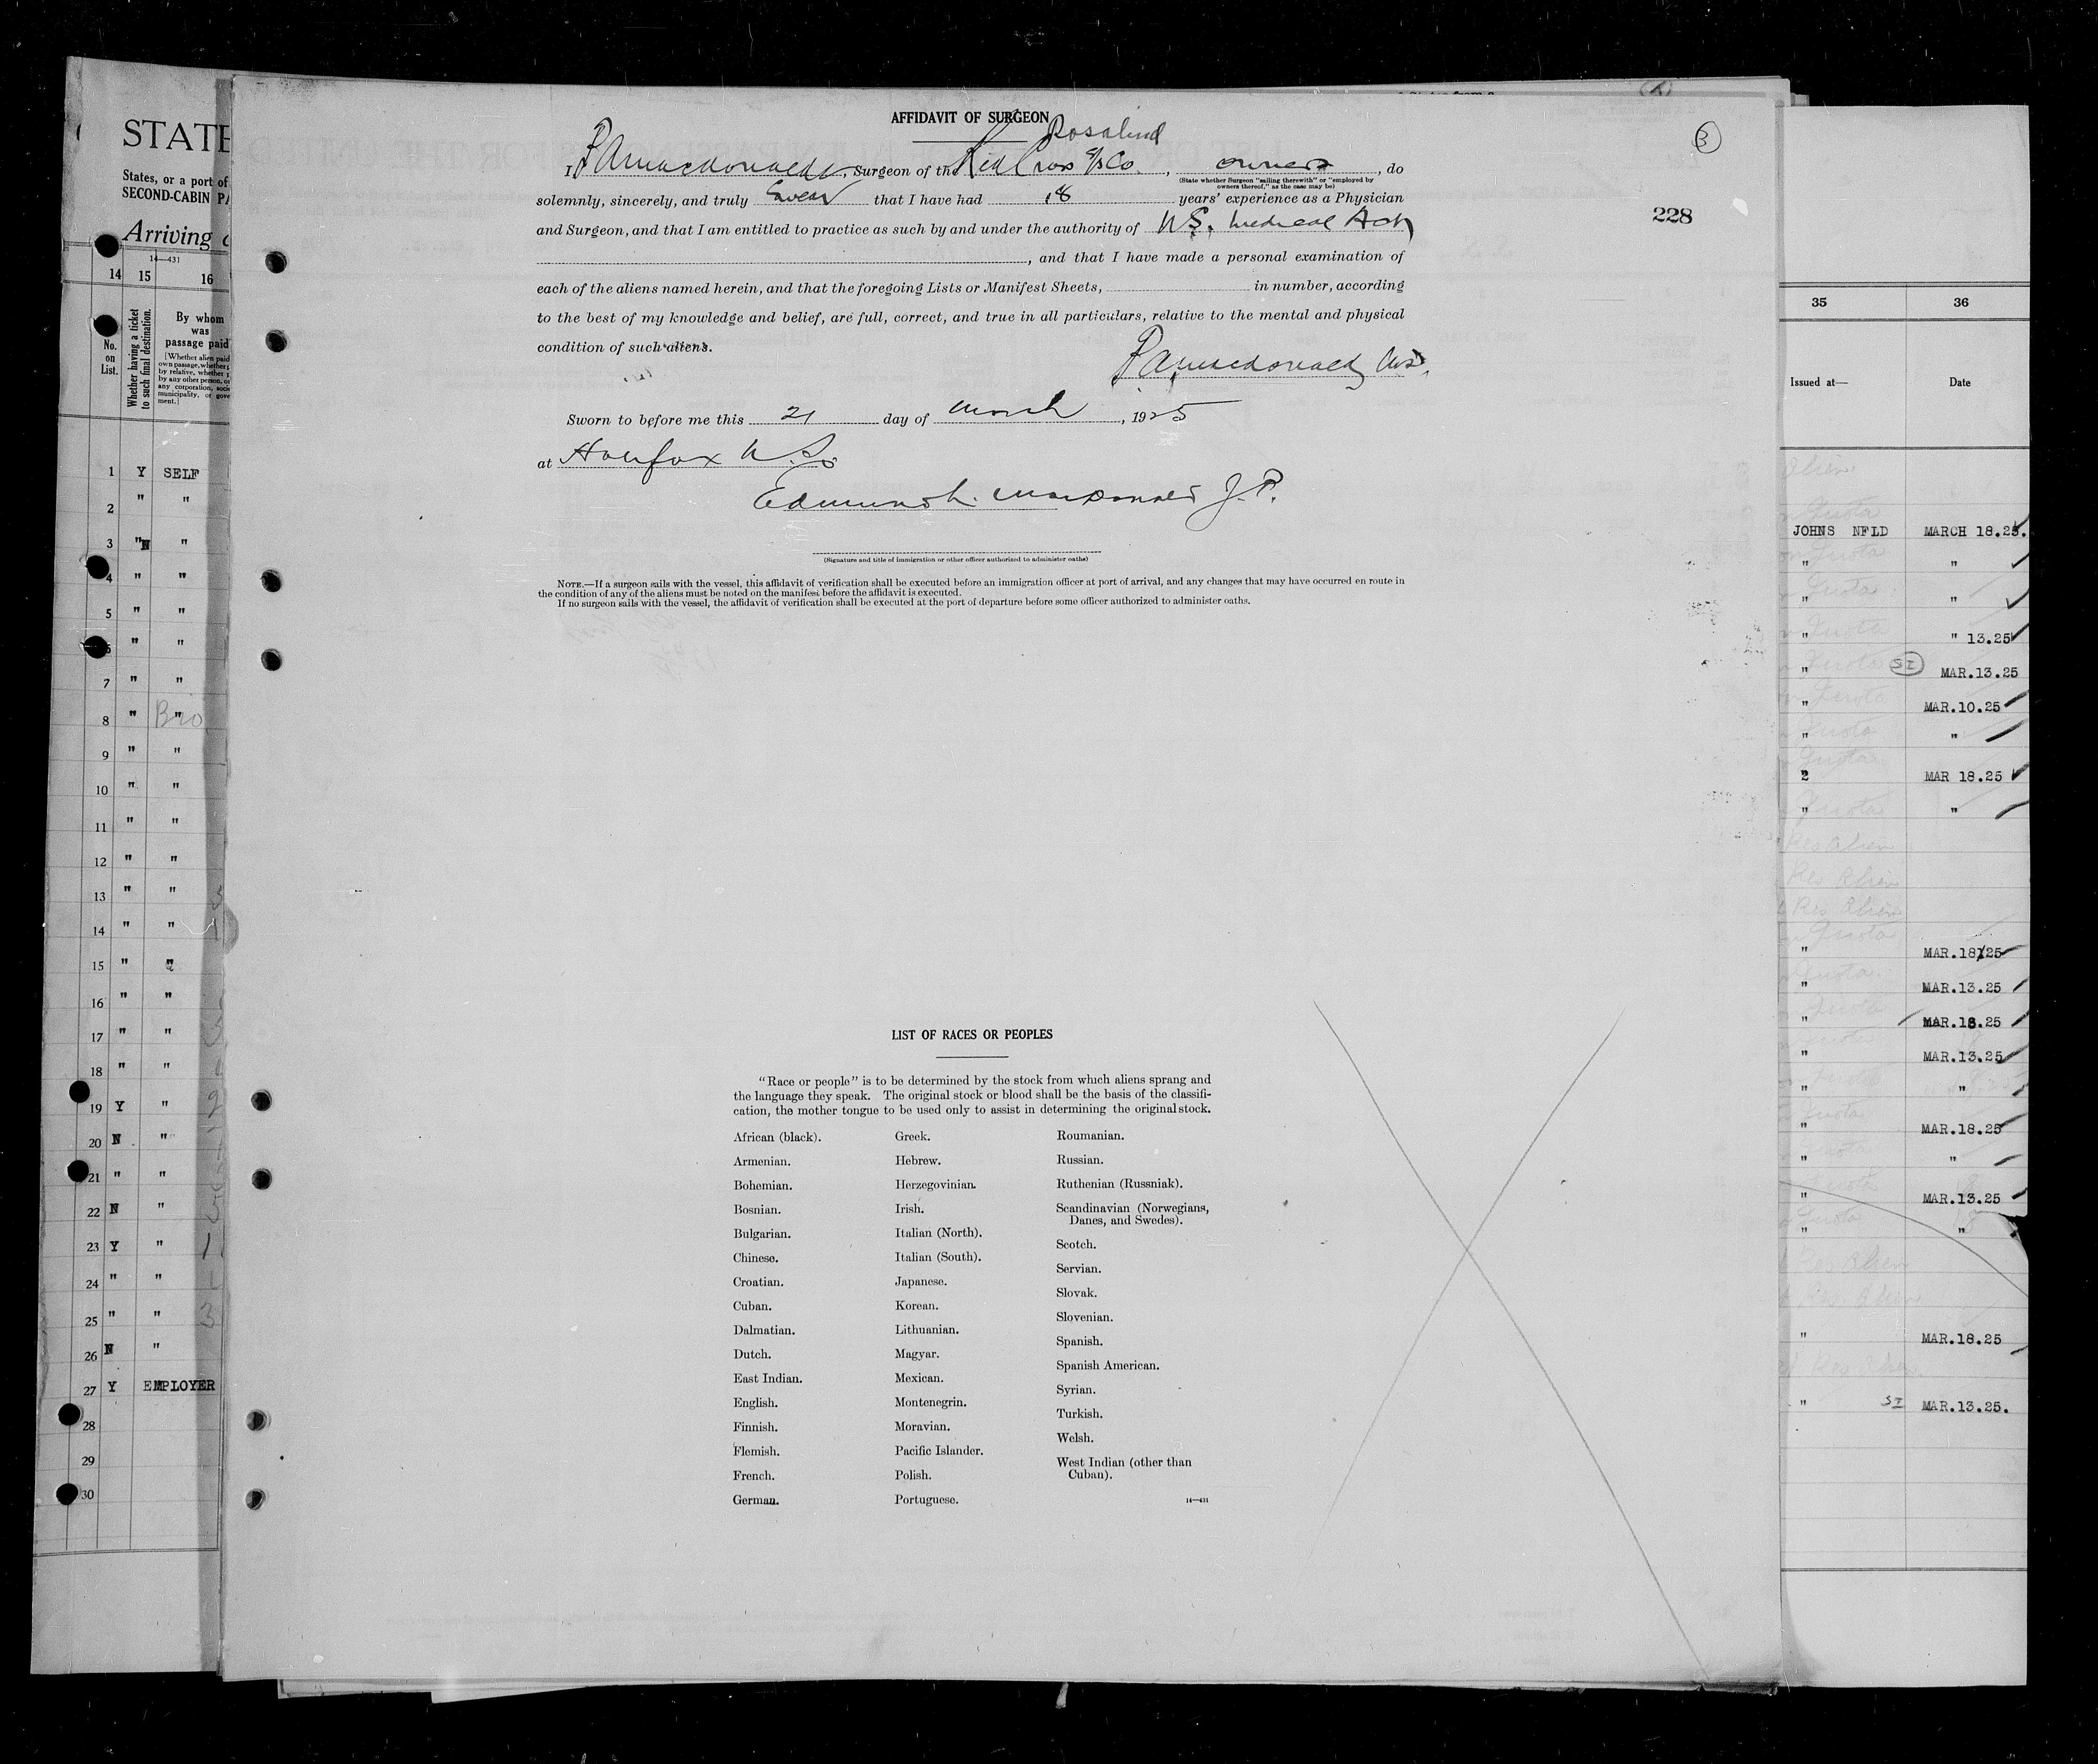 STATE
States, or a port of
SECOND-CABIN PA
Arriving
14—431
14 15 16
No. on List.
Whether having a ticket to such final destination.
By whom was passage paid
[Whether alien paid
own passage, whether
by relative, whether
by any other person, or
any corporation,
municipality, or gove
ment.]
1 Y SELF
2 " "
3 "N "
4 " "
5 " "
" "
7 " "
8 " "
9 " "
10 " "
11 " "
12 " "
13 " "
14 " "
15 " "
16 " "
17 " "
18 " "
19 Y "
20 N "
21 " "
22 N "
23 Y "
24 " "
25 " "
26 N "
27 Y EMPLOYER
28
29
30
AFFIDAVIT OF SURGEON
Rosalind
3
I, P A Macdonald, Surgeon of the Red Cross S/S Co., owners, do
(State whether Surgeon "sailing therewith" or "employed by owners thereof," as the case may be)
solemnly, sincerely, and truly Swear that I have had 18 years' experience as a Physician
228
and Surgeon, and that I am entitled to practice as such by and under the authority of N.S. Medical Act
, and that I have made a personal examination of
each of the aliens named herein, and that the foregoing Lists or Manifest Sheets, in number, according
to the best of my knowledge and belief, are full, correct, and true in all particulars, relative to the mental and physical
condition of such aliens.
P A Macdonald M.D.
Sworn to before me this 21 day of March, 1925
at Halifax N.S.
Edmund L. MacDonald J.P.
(Signature and title of immigration or other officer authorized to administer oaths)
NOTE.—If a surgeon sails with the vessel, this affidavit of verification shall be executed before an immigration officer at port of arrival, and any changes that may have occurred en route in
the condition of any of the aliens must be noted on the manifest before the affidavit is executed.
If no surgeon sails with the vessel, the affidavit of verification shall be executed at the port of departure before some officer authorized to administer oaths.
LIST OF RACES OR PEOPLES
"Race or people" is to be determined by the stock from which aliens sprang and
the language they speak. The original stock or blood shall be the basis of the classifi-
cation, the mother tongue to be used only to assist in determining the original stock.
African (black).
Armenian.
Bohemian.
Bosnian.
Bulgarian.
Chinese.
Croatian.
Cuban.
Dalmatian.
Dutch.
East Indian.
English.
Finnish.
Flemish.
French.
German.
Greek.
Hebrew.
Herzegovinian.
Irish.
Italian (North).
Italian (South).
Japanese.
Korean.
Lithuanian.
Magyar.
Mexican.
Montenegrin.
Moravian.
Pacific Islander.
Polish.
Portuguese.
Roumanian.
Russian.
Ruthenian (Russniak).
Scandinavian (Norwegians,
Danes, and Swedes).
Scotch.
Servian.
Slovak.
Slovenian.
Spanish.
Spanish American.
Syrian.
Turkish.
Welsh.
West Indian (other than
Cuban).
14—431
35 36
Issued at— Date
JOHNS NFLD MARCH 18.25.
" "
" "
" " 13.25
" SI MAR.13.25
" MAR.10.25
" "
2 MAR 18.25
" "
" MAR.18.25
" MAR.13.25
" MAR.18.25
" MAR.13.25
" "
" MAR.18.25
" "
" MAR.13.25
" "
" MAR.18.25
" SI MAR.13.25.